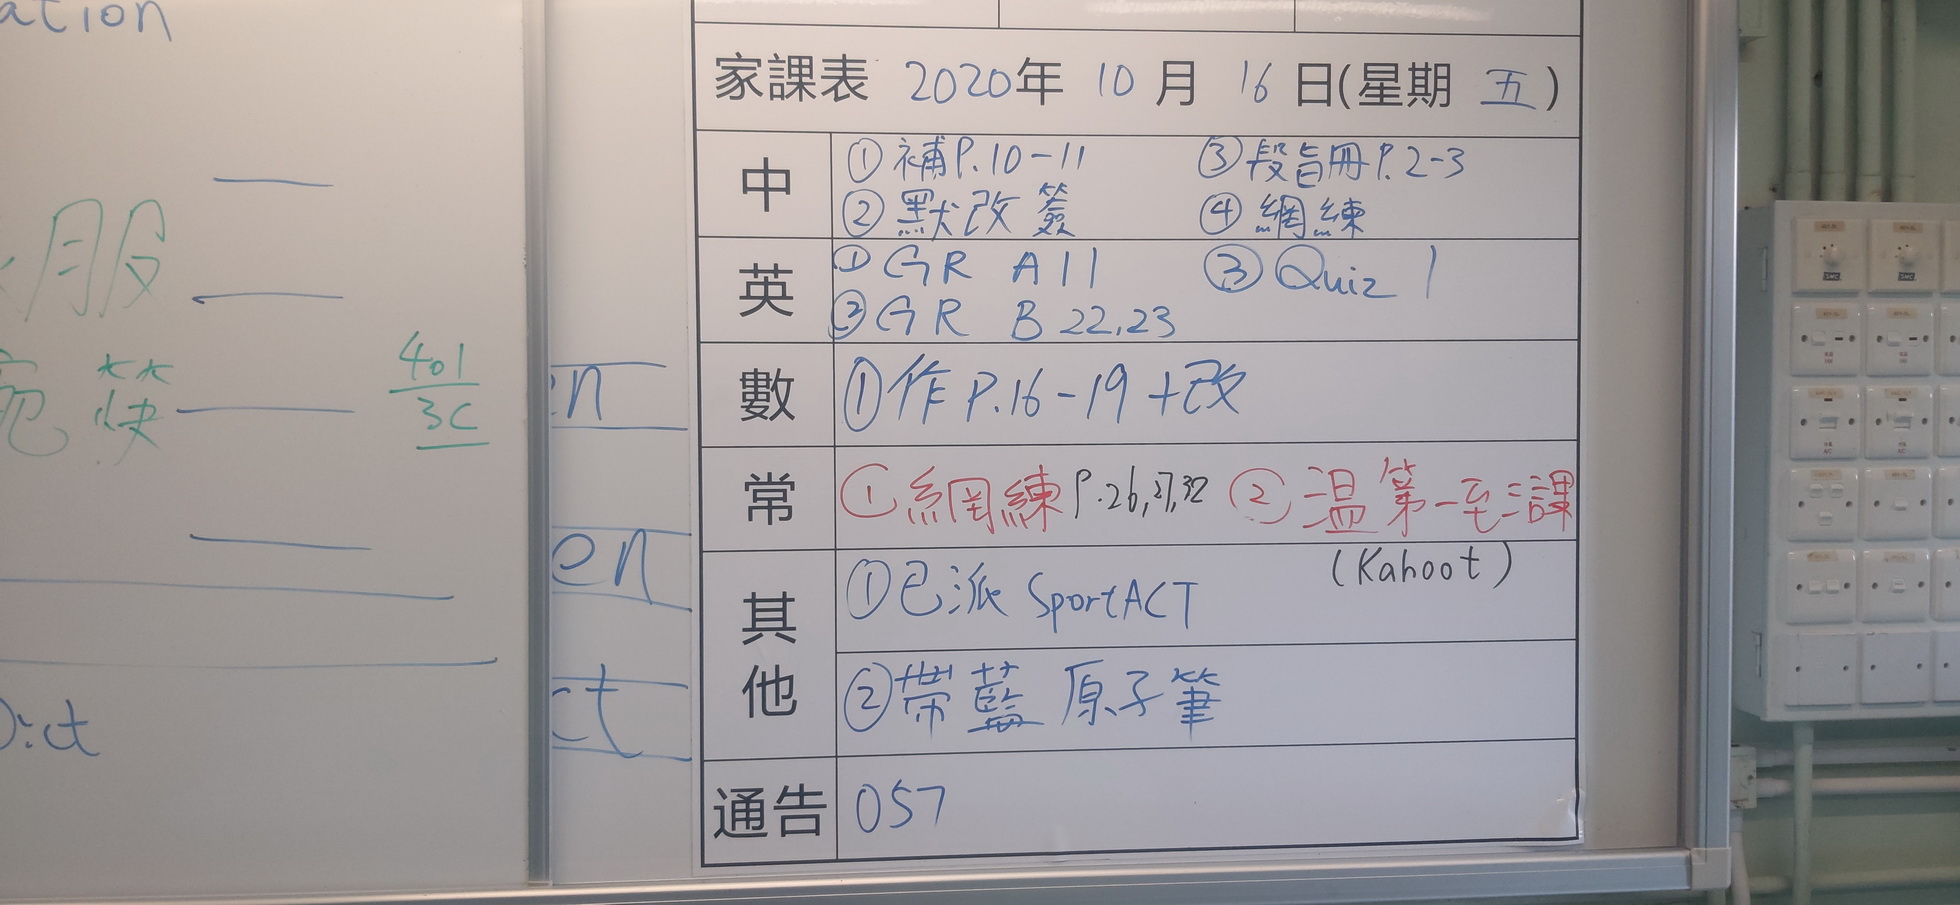 ation
服
筷
401
3C
Dict
en
en
ct
家課表 2020年 10 月 16 日(星期 五)
中
① 補P.10-11 ③ 段旨冊 P.2-3
② 默改簽 ④ 網練
英
① GR A11 ③ Quiz 1
② GR B 22,23
數
① 作 P.16-19 +改
常
① 網練 P.26,27,32 ② 溫第一至三課
(Kahoot)
其他
① 已派 SportACT
② 帶藍原子筆
通告
057